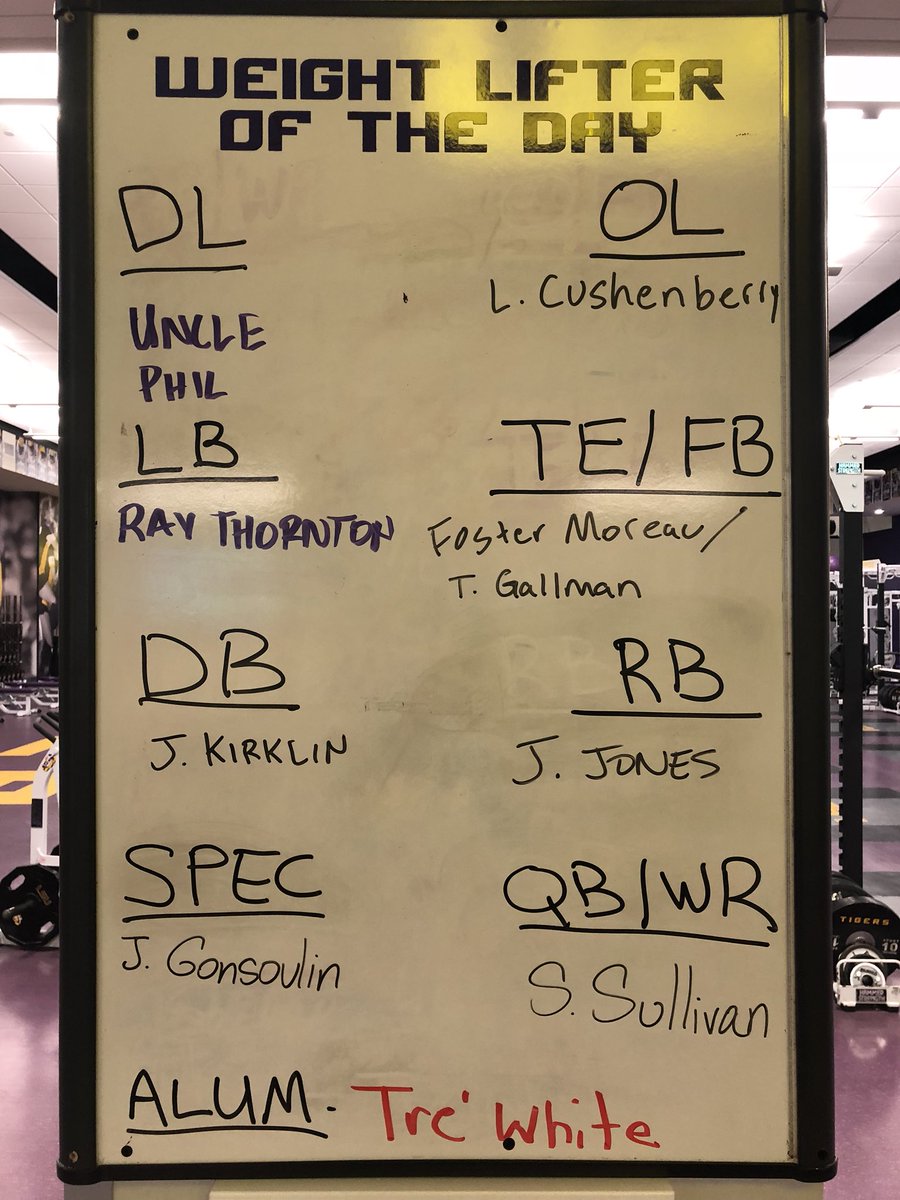 WEIGHT LIFTER
OF THE DAY
DL
UNCLE
PHIL
OL
L. Cushenberry
LB
RAY THORNTON
TE/FB
Foster Moreau/
T. Gallman
DB
J. KIRKLIN
RB
J. JONES
SPEC
J. Gonsoulin
QB/WR
S. Sullivan
ALUM. Tre' White
HAMMER
STRENGTH
TIGERS
10
HAMMER
STRENGTH